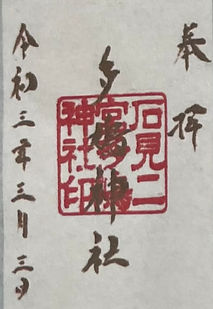 奉拝
多鳩神社
石見二
宮多鳩
神社印
令和三年三月三日